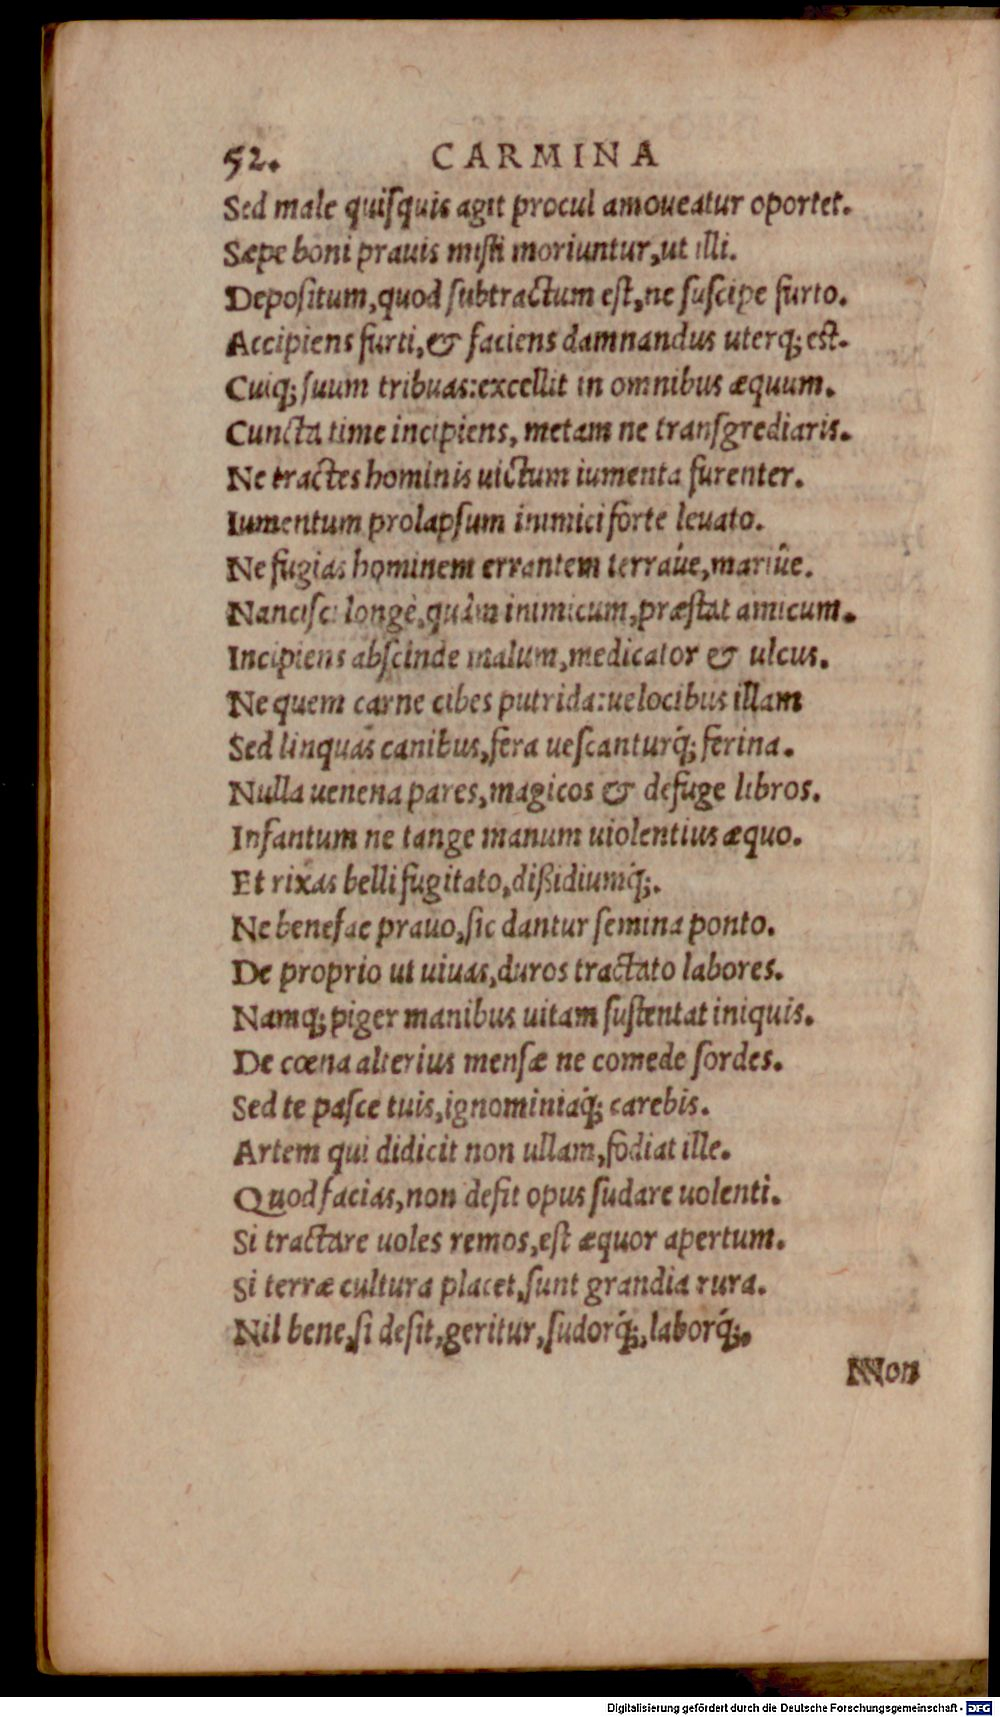 52. CARMINA
Sed male quiſquis agit procul amoueatur oportet.
Sæpe boni prauis miſti moriuntur, ut illi.
Depoſitum, quod ſubtractum eſt, ne ſuſcipe furto.
Accipiens furti, & faciens damnandus uterq; eſt.
Cuiq; ſuum tribuas: excellit in omnibus æquum.
Cuncta time incipiens, metam ne tranſgrediaris.
Ne tractes hominis uictum iumenta furenter.
Iumentum prolapſum inimici forte leuato.
Ne fugias hominem errantem terraúe, mariúe.
Nanciſci longè, quàm inimicum, præſtat amicum.
Incipiens abſcinde malum, medicator & ulcus.
Ne quem carne cibes putrida: uelocibus illam
Sed linquas canibus, fera ueſcanturq́; ferina.
Nulla uenena pares, magicos & defuge libros.
Infantum ne tange manum uiolentius æquo.
Et rixas belli fugitato, dißidiumq́;.
Ne benefac prauo, ſic dantur ſemina ponto.
De proprio ut uiuas, duros tractato labores.
Namq; piger manibus uitam ſuſtentat iniquis.
De cœna alterius menſæ ne comede ſordes.
Sed te paſce tuis, ignominiaq́; carebis.
Artem qui didicit non ullam, fodiat ille.
Quod facias, non defit opus ſudare uolenti.
Si tractare uoles remos, eſt æquor apertum.
Si terræ cultura placet, ſunt grandia rura.
Nil bene, ſi deſit, geritur, ſudorq́;, laborq́;.
Non
Digitalisierung gefördert durch die Deutsche Forschungsgemeinschaft - DFG